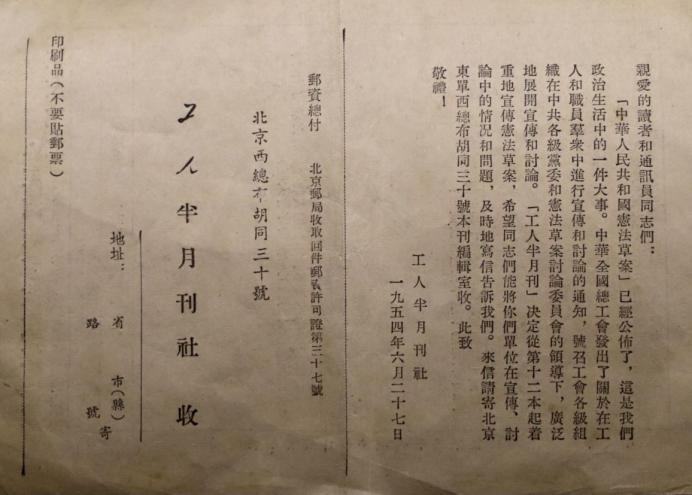 親愛的讀者和通訊員同志們：
「中華人民共和國憲法草案」已經公佈了，這是我們
政治生活中的一件大事。中華全國總工會發出了關於在工
人和職員羣衆中進行宣傳和討論的通知，號召工會各級組
織在中共各級黨委和憲法草案討論委員會的領導下，廣泛
地展開宣傳和討論。「工人半月刊」決定從第十二本起着
重地宣傳憲法草案，希望同志們能將你們單位在宣傳、討
論中的情況和問題，及時地寫信告訴我們。來信請寄北京
東單西總布胡同三十號本刊編輯室收。此致
敬禮！
工人半月刊社
一九五四年六月二十七日
郵資總付　北京郵局收取回件郵資許可證第三十七號
北京西總布胡同三十號
工人半月刊社收
地址：　省　市（縣）
路　號　寄
印刷品（不要貼郵票）